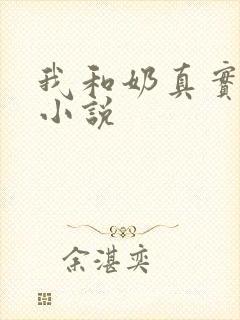 我和奶真實
小說
余湛奕